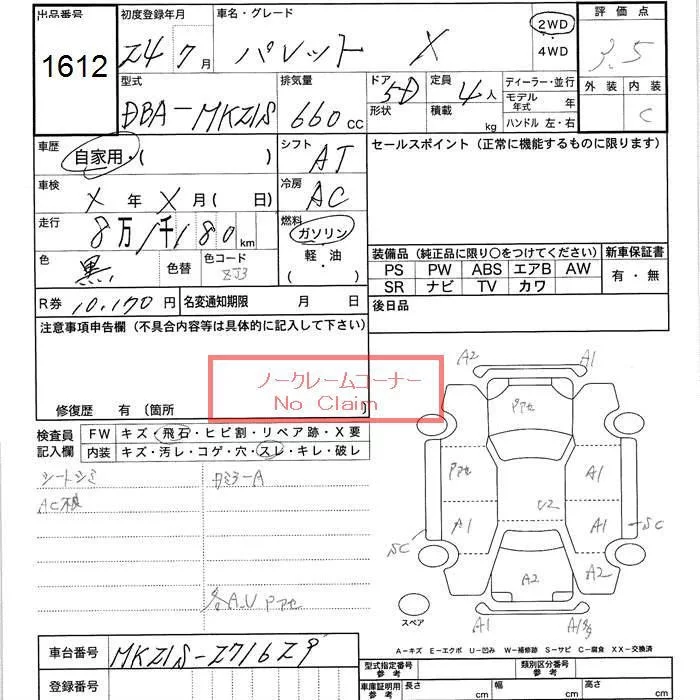 出品番号 初度登録年月 車名・グレード 評価点
1612 24 7月 パレット X 2WD 3.5
4WD
型式 排気量 ドア 定員 ディーラー・並行 外装 内装
DBA-MK21S 660cc 5D 4人 モデル年式 年 C
形状 積載 kg ハンドル 左・右
車歴 シフト セールスポイント(正常に機能するものに限ります)
自家用・( ) AT
車検 冷房
X年 X月( 日) AC
走行 燃料
8万1千180km ガソリン
軽・油
( )
色 色替 色コード
黒 ZJ3
装備品(純正品に限り○をつけてください) 新車保証書
PS PW ABS エアB AW 有・無
SR ナビ TV カワ
R券 10,170円 名変通知期限 月 日 後日品
注意事項申告欄(不具合内容等は具体的に記入して下さい)
ノークレームコーナー
No Claim
修復歴 有(箇所 )
検査員 FW キズ・飛石・ヒビ割・リペア跡・X要
記入欄 内装 キズ・汚レ・コゲ・穴・スレ・キレ・破レ
シートシミ カミラーA
AC不良
各A.U Pアセ
A2 A1
Pアセ
Pアセ A1
U2
A1 A1
SC SC
A2 A2
スペア A1
A-キズ E-エクボ U-凹み W-補修跡 S-サビ C-腐食 XX-交換済
車台番号 MK21S-271629
登録番号
型式指定番号 参考 類別区分番号 参考
車庫証明用 参考 長さ cm 幅 cm 高さ cm